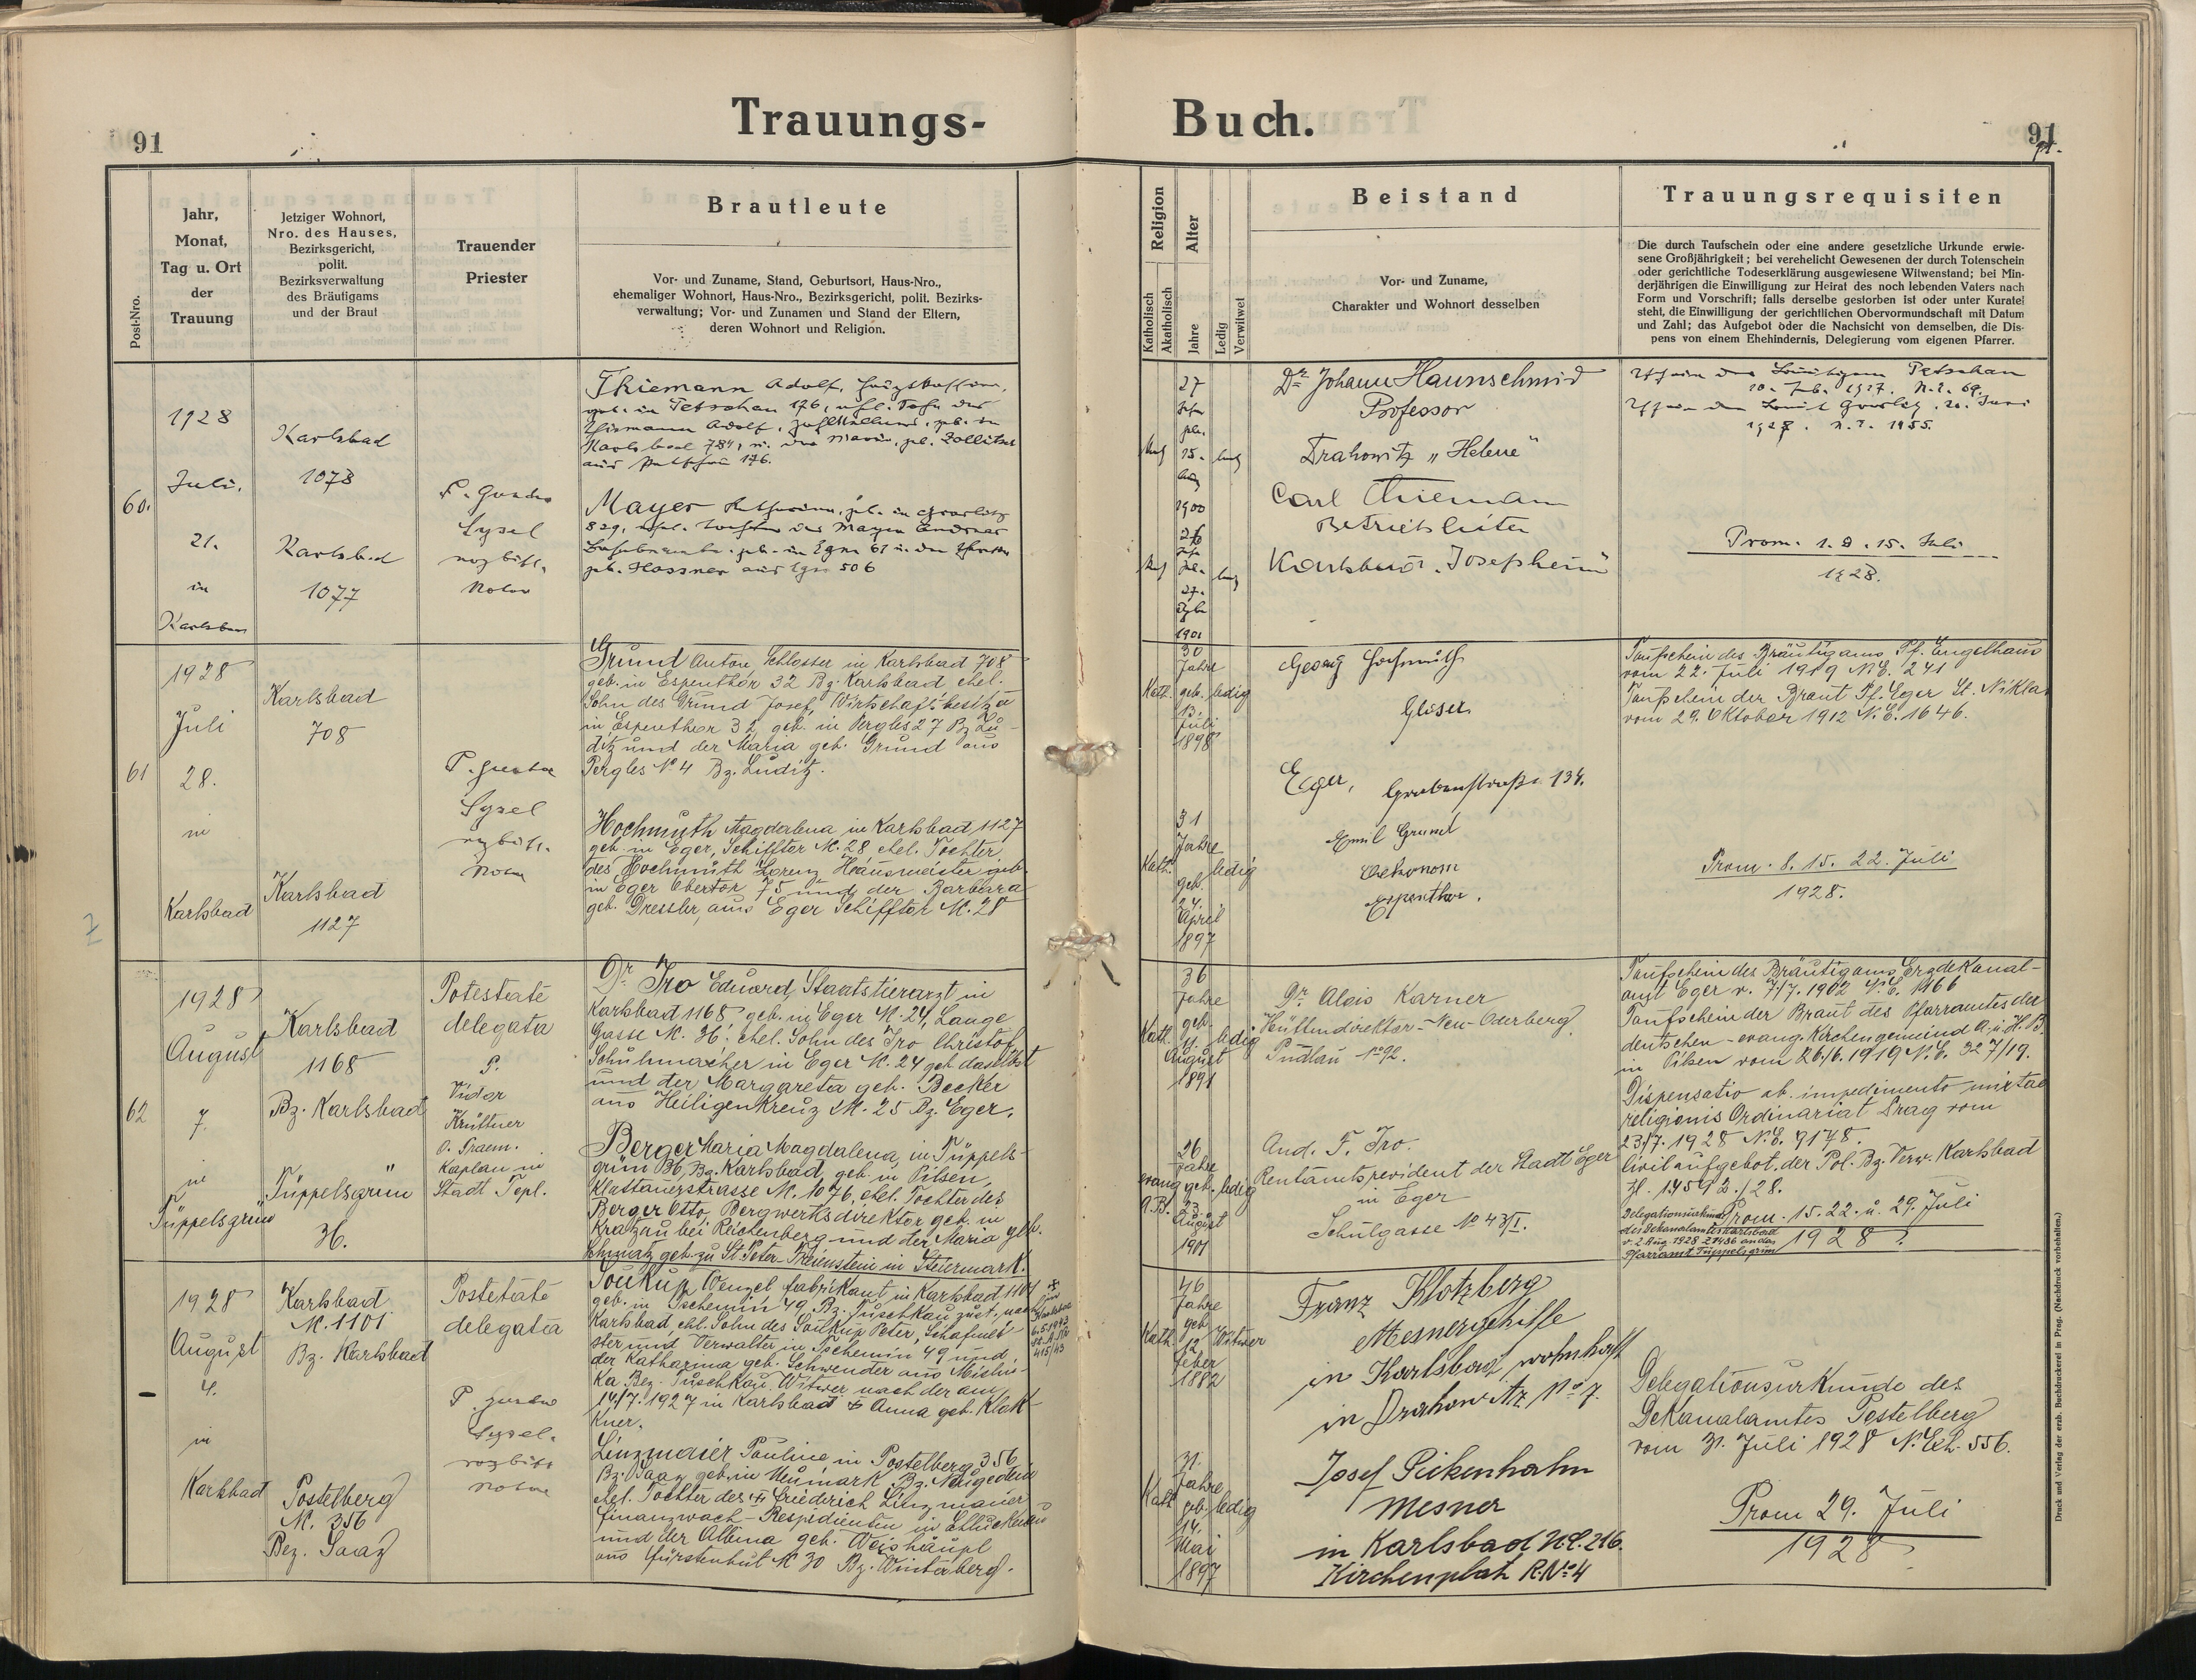 Trauungs-
Buch.
91
91
Post-Nro.
Jahr,
Monat,
Tag u. Ort
der
Trauung
Jetziger Wohnort,
Nro. des Hauses,
Bezirksgericht,
polit.
Bezirksverwaltung
des Bräutigams
und der Braut
Trauender
Priester
Brautleute
Vor- und Zuname, Stand, Geburtsort, Haus-Nro.,
ehemaliger Wohnort, Haus-Nro., Bezirksgericht, polit. Bezirks-
verwaltung; Vor- und Zunamen und Stand der Eltern,
deren Wohnort und Religion.
Religion
Katholisch
Akatholisch
Alter
Jahre
Ledig
Verwitwet
Beistand
Vor- und Zuname,
Charakter und Wohnort desselben
Trauungsrequisiten
Die durch Taufschein oder eine andere gesetzliche Urkunde erwie-
sene Großjährigkeit; bei verehelicht Gewesenen der durch Totenschein
oder gerichtliche Todeserklärung ausgewiesene Witwenstand; bei Min-
derjährigen die Einwilligung zur Heirat des noch lebenden Vaters nach
Form und Vorschrift; falls derselbe gestorben ist oder unter Kuratel
steht, die Einwilligung der gerichtlichen Obervormundschaft mit Datum
und Zahl; das Aufgebot oder die Nachsicht von demselben, die Dis-
pens von einem Ehehindernis, Delegierung vom eigenen Pfarrer.
60.
1928
Juli.
21.
in
Karlsbad
Karlsbad
1078
Karlsbad
1077
Sysel
Notar
Thiemann Adolf,
geb. in Petschau 176,
Thiemann Adolf,
Karlsbad 784, Zollitsch
176.
Mayer
829, Mayer Andreas
geb. in Eger 61
geb. Hassner aus Eger 506
27
15.
1900
26
27.
1901
Dr. Johann Haunschmid
Professor
Drahowitz „Helene"
Carl Thiemann
Betriebsleiter
Karlsbad „Josefsheim"
Petschau
1927. N.E. 69.
1928. N.E. 1955.
Prom. 1. 8. 15. Juli
1928.
61
1928
Juli
28.
in
Karlsbad
Karlsbad
708
Karlsbad
1127
Sysel
Grund Anton, Schlosser in Karlsbad 708
geb. in Espenthor 32 Bz. Karlsbad ehel.
Sohn des Grund Josef, Wirtschaftsbesitzer
in Espenthor 32 geb. in Pergles 27 Bz Lu-
ditz und der Maria geb. Grund aus
Pergles No. 4 Bz. Luditz.
Hochmuth Magdalena in Karlsbad 1127
geb. in Eger, Schifftor N. 28 ehel. Tochter
des Hochmuth Lorenz Hausmeister geb.
in Eger Obertor 75 und der Barbara
geb. Dressler, aus Eger Schifftor N. 28
Kath.
30
Jahre
geb.
13.
Juli
1898
ledig
Kath.
31
Jahre
geb.
24.
April
1897
ledig
Georg Hochmuth
Glaser
Eger, Grabenstraße 134.
Emil Grund
Oekonom
Espenthor.
Taufschein des Bräutigams Pf. Engelhaus
vom 22. Juli 1919 N.E. 241
Taufschein der Braut Pf. Eger St. Niklas
vom 29. Oktober 1912 N.E. 1646.
Prom. 8. 15. 22. Juli
1928.
62
1928
August
7.
in
Tüppelsgrün
Karlsbad
1168
Bz. Karlsbad
Tüppelsgrün
36.
Potestate
delegata
P.
Vidor
Krüttner
O. Praem.
Kaplan in
Stadt Tepl.
Dr. Iro Eduard, Staatstierarzt in
Karlsbad 1168 geb. in Eger N. 24, Lange
Gasse N. 36, ehel. Sohn des Iro Christof
Schuhmacher in Eger N. 24 geb. daselbst
und der Margareta geb. Becker
aus Heiligenkreuz N. 25 Bz. Eger.
Berger Maria Magdalena, in Tüppels-
grün 36, Bz. Karlsbad, geb. in Pilsen,
Klattauerstrasse N. 1076, ehel. Tochter des
Berger Otto, Bergwerksdirektor geb. in
Kratzau bei Reichenberg und der Maria geb.
geb. zu St. Peter-Freienstein in Steiermark.
Kath.
36
Jahre
geb.
11.
August
1891
ledig
evang.
A.B.
26
Jahre
geb.
23.
August
1901
ledig
Dr. Alois Karner
Hüttendirektor-Neu-Oderberg.
Pudlau No. 92.
And. F. Iro.
Rentamtsrevident der Stadt Eger
in Eger
Schulgasse No 43/I.
Taufschein des Bräutigams Erzdekanal-
amt Eger v. 7/7. 1902 N.E. 1166
Taufschein der Braut des Pfarramtes der
deutschen-evang. Kirchengemeind A. u. H. B.
in Pilsen vom 26./6. 1919 N.E. 327/19.
Dispensatio ab impedimento mixtae
religionis Ordinariat Prag vom
23/7. 1928 N.E. 9178.
Civilaufgebot. der Pol. Bz. Verw. Karlsbad
Zl. 14592./28.
Delegationsurkunde
des Dekanalamtes Karlsbad
v. 2 Aug 1928 Z 1486 an das
Pfarramt Tüppelsgrün
Prom. 15. 22. u. 29. Juli
1928.
1928
August
4.
in
Karlsbad
Karlsbad
N. 1101
Bz. Karlsbad
Postelberg
N. 356
Bez. Saaz
Postetate
delegata
Sysel.
Soukup Wenzel, Fabrikant in Karlsbad 1101
geb. in Tschemin 49, Bz. Tuschkau zust. nach
Karlsbad, ehl. Sohn des Soukup Peter, Schafmei-
ster und Verwalter in Tschemin 49 und
der Katharina geb. Schwender aus Mislin-
ka Bez. Tuschkau, Witwer nach der am
14/7. 1927 in Karlsbad + Anna geb. Klak-
kner.
Linzmaier Pauline in Postelberg 356
Bz. Saaz geb. in Neumark Bz. Neugedein
ehel. Tochter des + Friederich Linzmaier
Finanzwach-Respizienten in Schluckenau
und der Albina geb. Weishäupl
aus Fürstenhut N 30 Bz. Winterberg.
Kath.
46
Jahre
geb.
12
Feber
1882
Witwer
Kath.
31.
Jahre
geb.
14.
Mai
1897
ledig
Franz Klotzberg
Mesnergehilfe
in Karlsbad, wohnhaft
in Drahowitz No. 7.
Josef Pickenhahn
Mesner
in Karlsbad No. 216.
Kirchenplatz R.No. 4
Delegationsurkunde des
Dekanalamtes Postelberg
vom 31. Juli 1928 N. Exh. 556.
Prom 29. Juli
1928
Druck und Verlag der erzb. Buchdruckerei in Prag. (Nachdruck vorbehalten.)